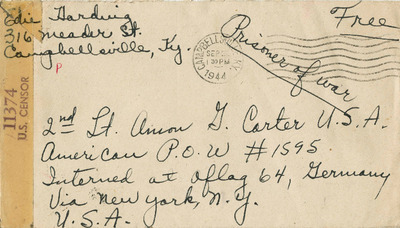 Edie Harding
316 Meader St.
Campbellsville, Ky.
Free
Prisoner of war
P
CAMPBELLSVILLE, KY.
SEP
1 30 PM
1944
11374
U.S. CENSOR
2nd Lt. Amon G. Carter U.S.A.
American P.O.W #1595
Interned at Oflag 64, Germany
Via New York, N.Y.
U.S.A.